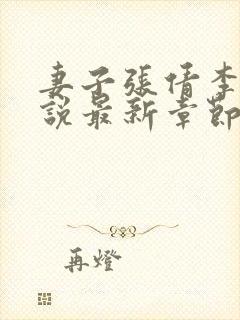 妻子張倩李
說最新章節
再燈